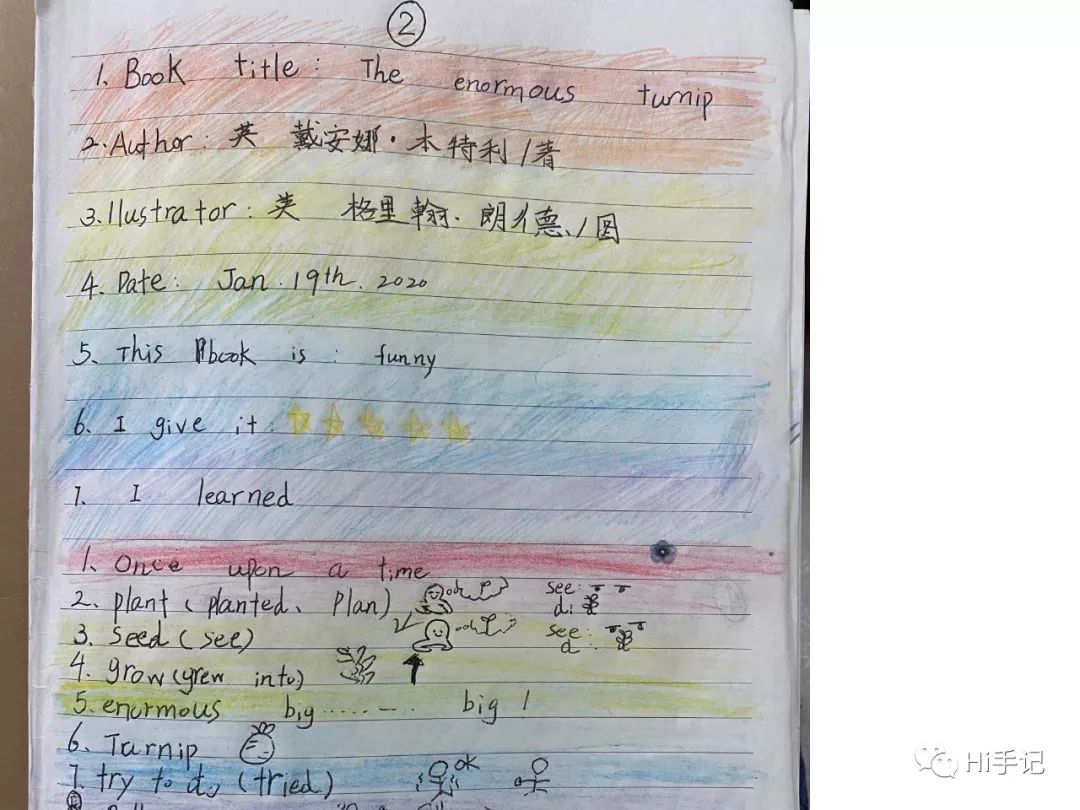 ②
1. Book title: The enormous turnip
2. Author: 英 戴安娜·本特利/著
3. Illustrator: 英 格里翰·朗德/图
4. Date: Jan.19th.2020
5. This book is: funny
6. I give it:
7. I learned
1. Once upon a time
2. plant(planted、plan) oh see: d:
3. seed(see) ooh see: d:
4. grow(grew into)
5. enormous big......-. big!
6. Turnip
7. try to do (tried) OK
Hi手记